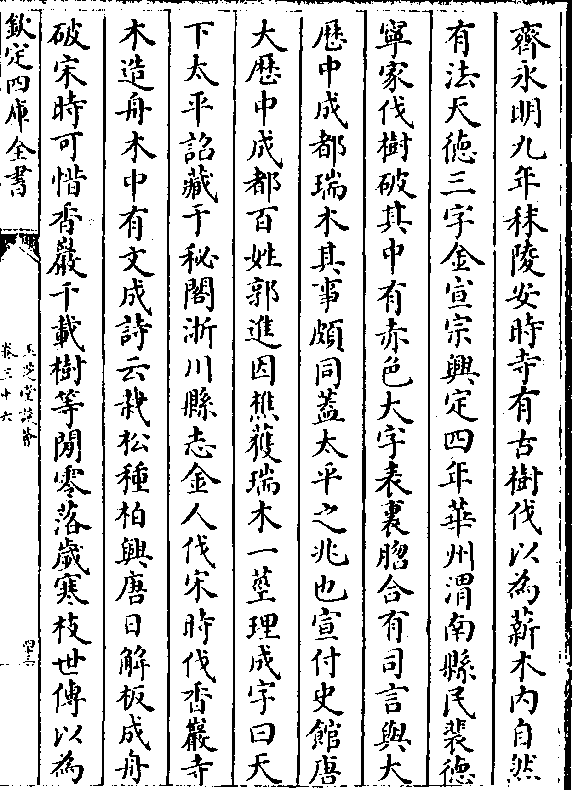 齊永明九年秣陵安時寺有古樹伐以為薪木内自然
有法天徳三字金宣宗興定四年華州渭南縣民裴德
寧家伐樹破其中有赤色大字表裏脗合有司言與大
歴中成都瑞木其事頗同蓋太平之兆也宣付史館唐
大歴中成都百姓郭進因樵獲瑞木一莖理成字曰天
下太平詔藏于秘閣淅川縣志金人伐宋時伐香巖寺
木造舟木中有文成詩云栽松種柏興唐日解板成舟
破宋時可惜香巖千載樹等閒零落歲寒枝世傳以為
欽定四庫全書
玉芝堂談薈
卷三十六